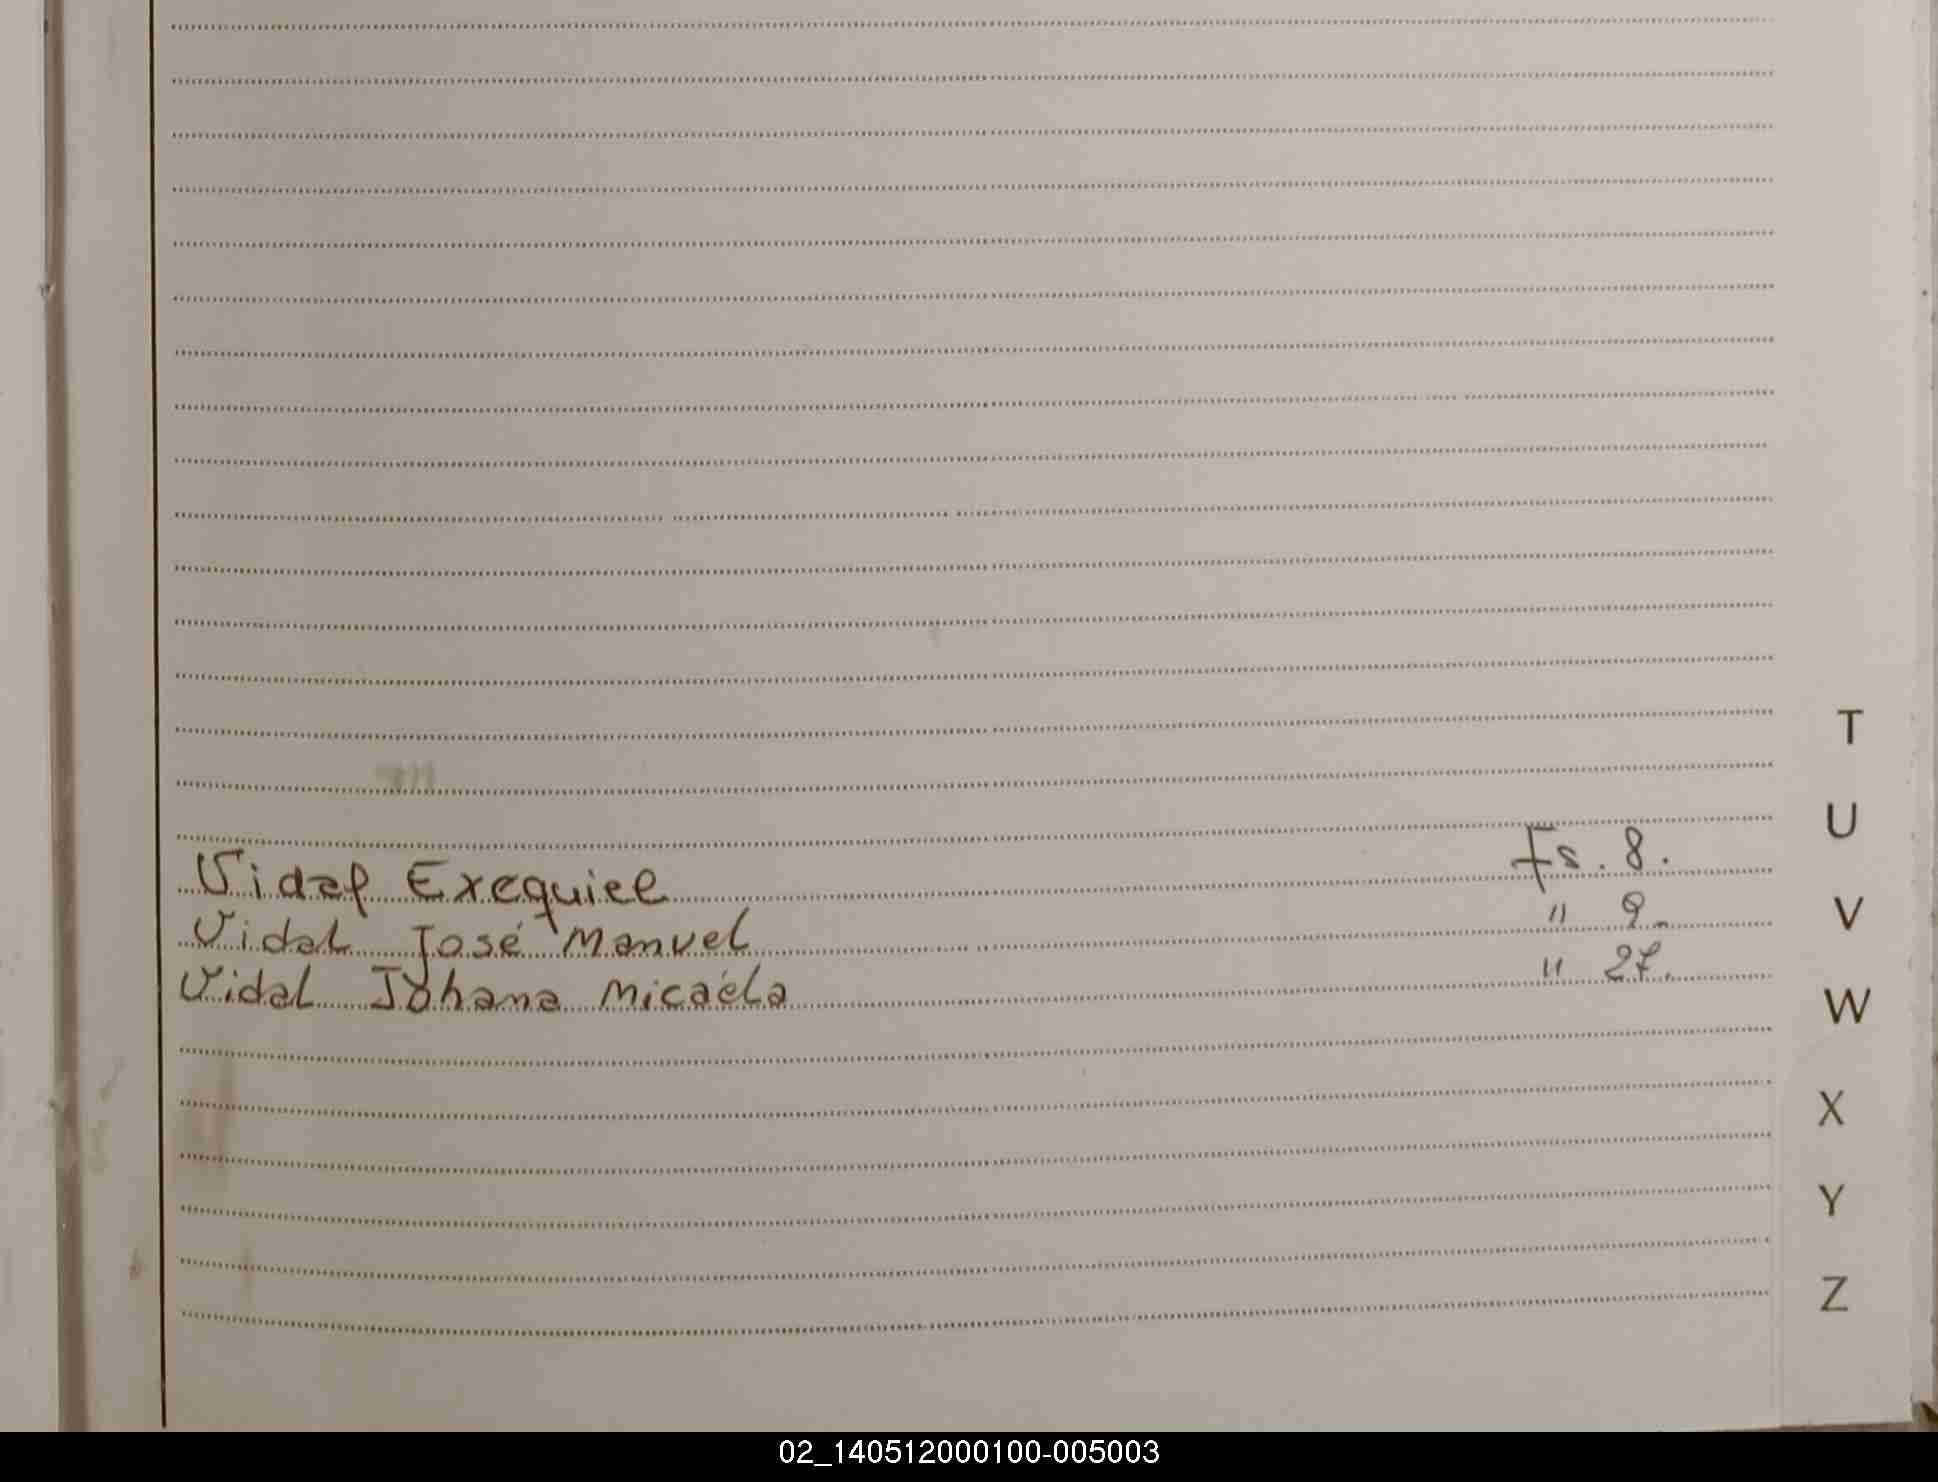 Vidal Exequiel Fs. 8.
Vidal José Manuel " 9.
Vidal Johana Micaéla " 27.
T
U
V
W
X
Y
Z
02_140512000100-005003